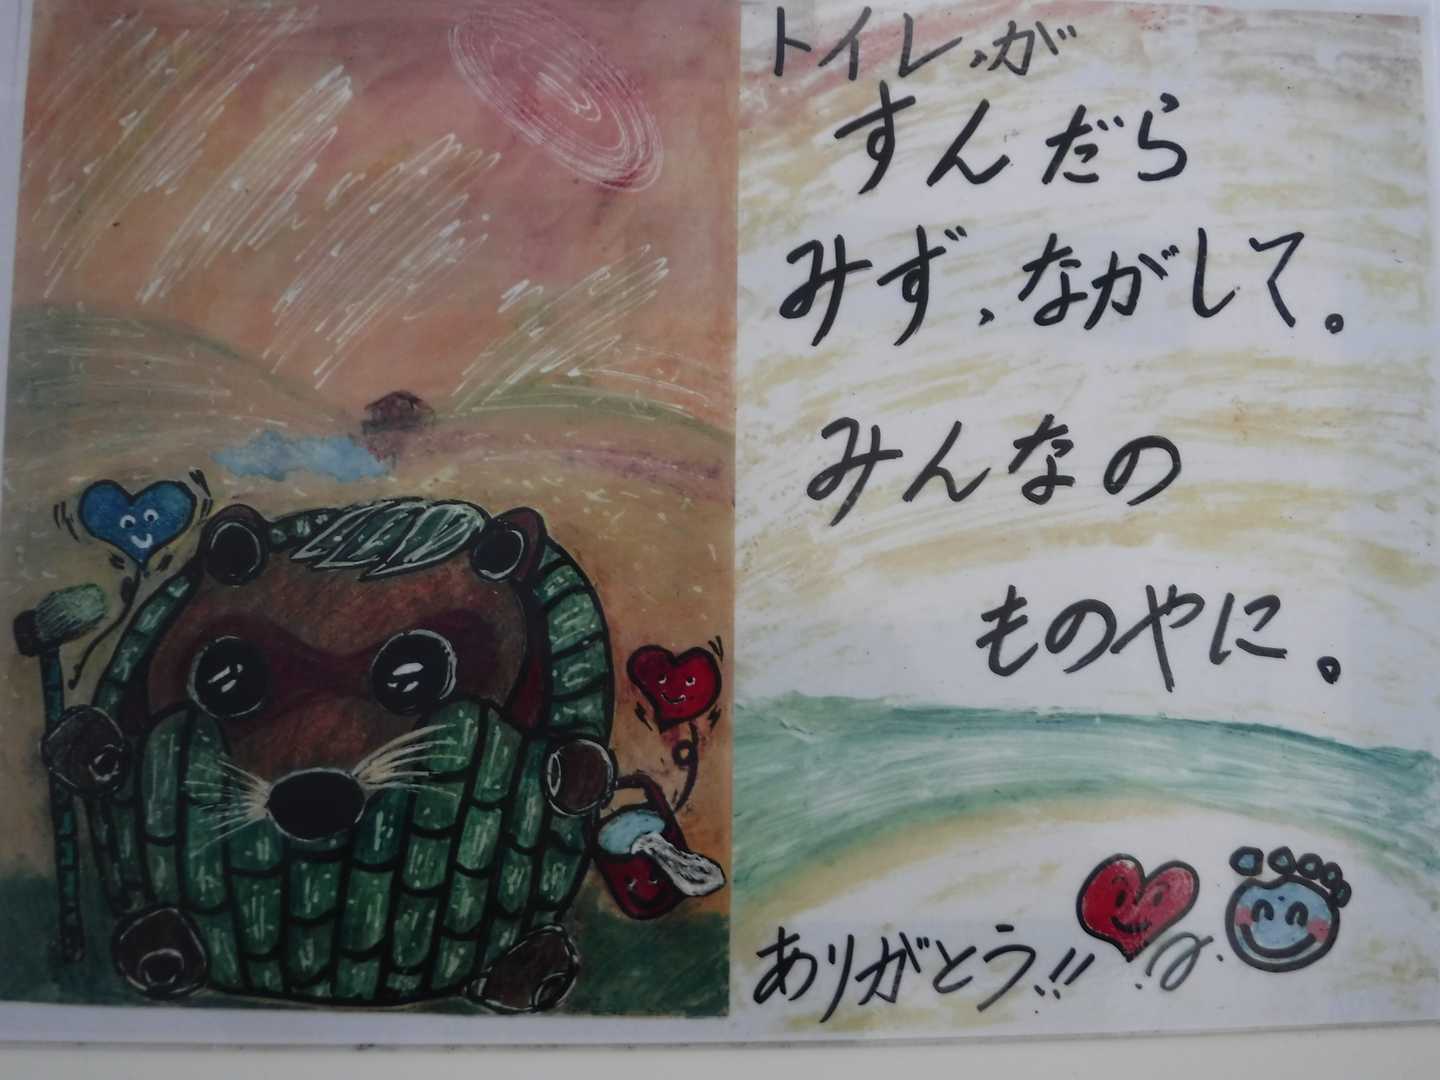 トイレ、が
すんだら
みず、ながして。
みんなの
ものやに。
ありがとう!!